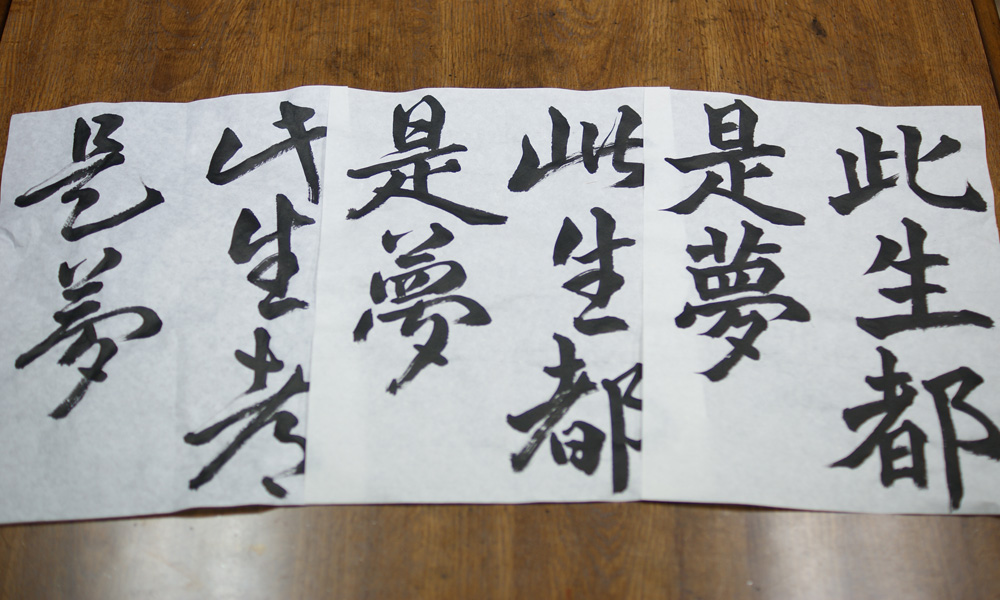 此生都
是夢
此生都
是夢
此生都
是夢